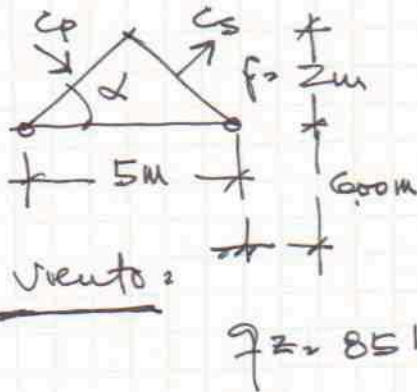 Cp Cs
α f= 2m
5m 6.00m
Viento:
qz= 85